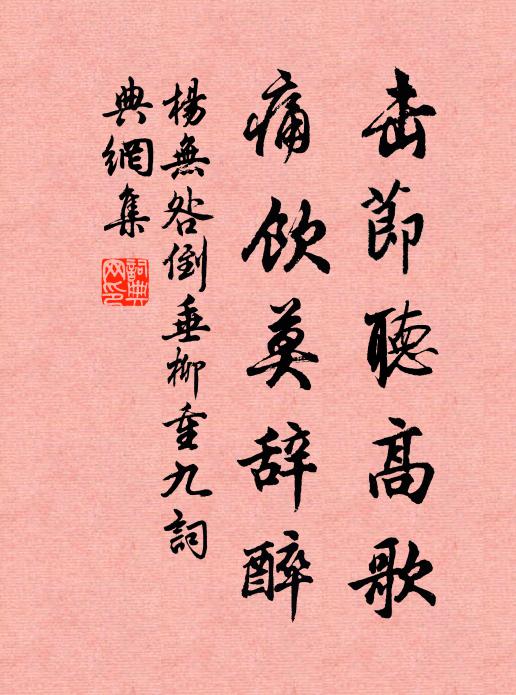 击節聽高歌
痛饮莫辞醉
楊無咎倒垂柳重九詞
典網集
詞典網印